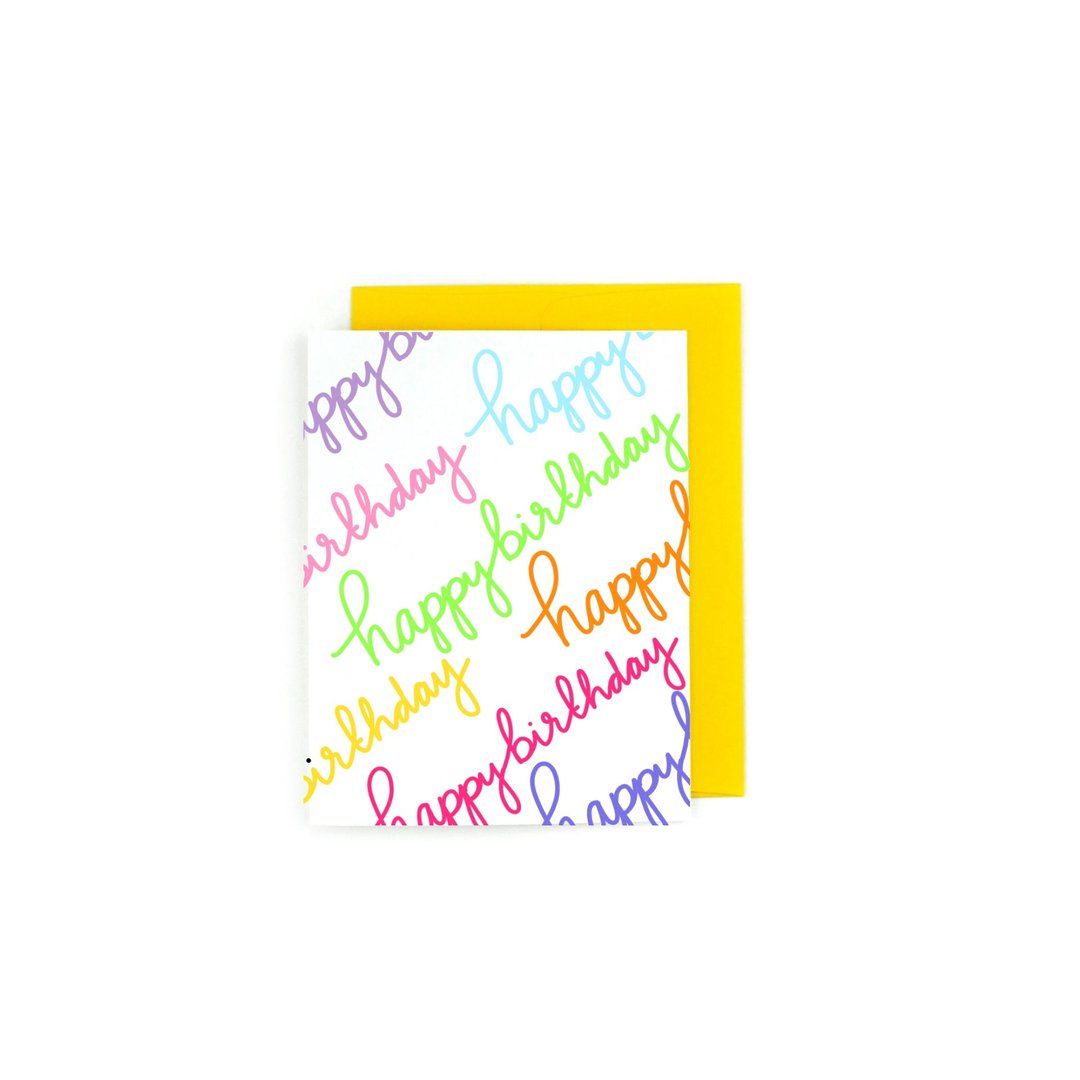 appy bi
happy
birthday
happy birthday
happy
birthday
happy birthday
happy